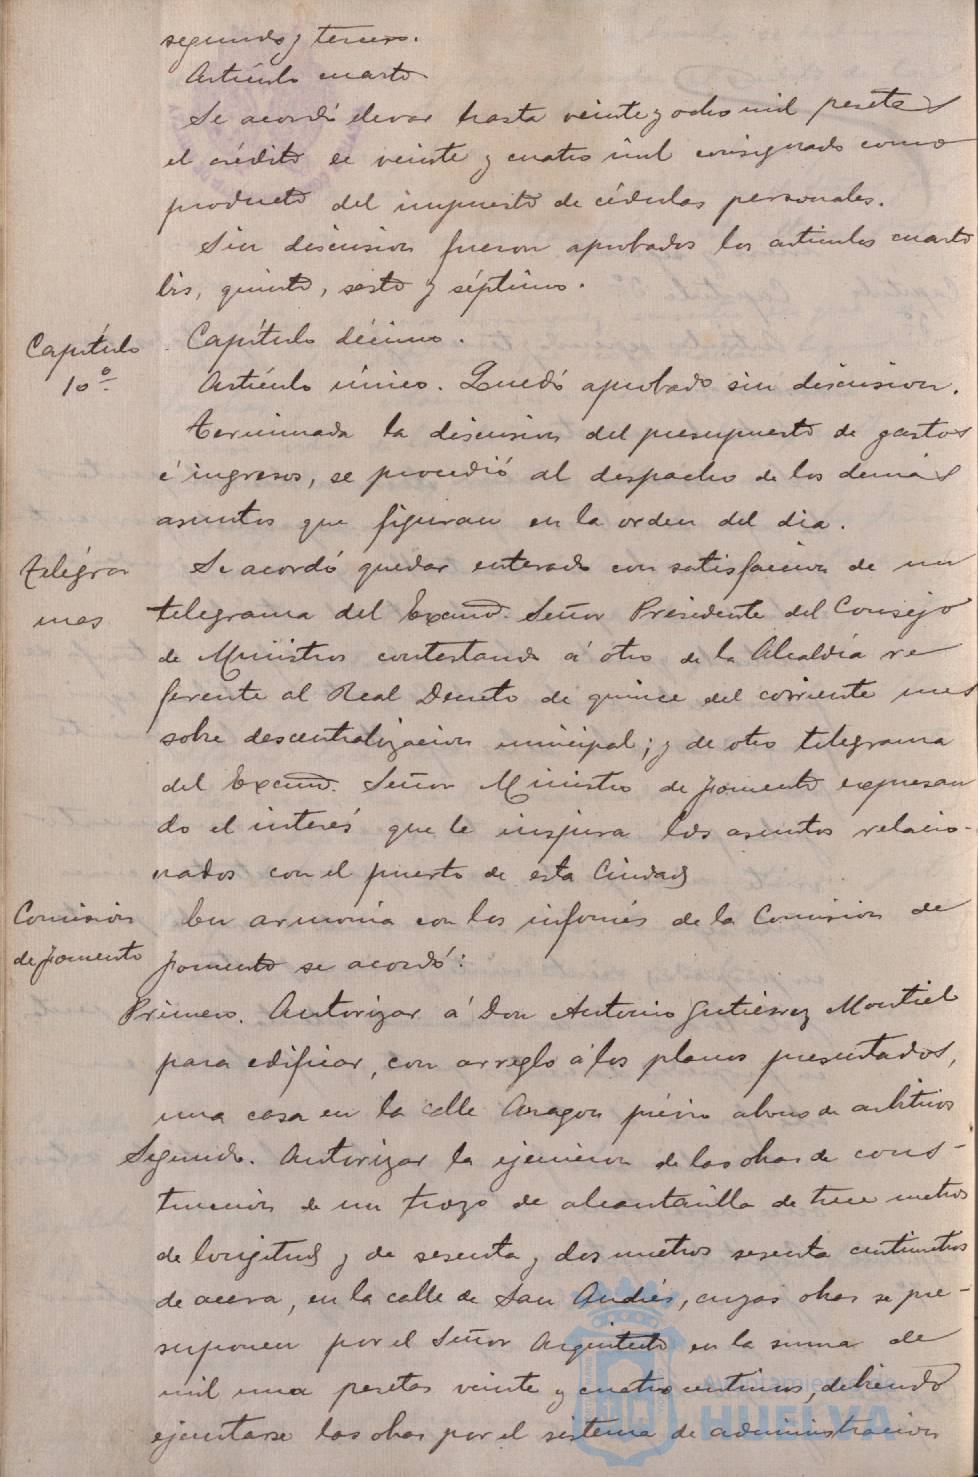 segundo y tercero.
Artículo cuarto
Se acordó elevar hasta veinte y ocho mil pesetas
el crédito de veinte y cuatro mil consignado como
producto del impuesto de cédulas personales.
Sin discusion fueron aprobados los articulos cuarto
bis, quinto, sesto y séptimo.
Capítulo
10º
Capítulo décimo.
Artículo único. Quedó aprobado sin discusion.
Terminada la discusion del presupuesto de gastos
é ingresos, se procedió al despacho de los demás
asuntos que figuran en la orden del dia.
Telégra
mas
Se acordó quedar enterado con satisfaccion de un
telegrama del Excmo. Señor Presidente del Consejo
de Ministros contestando á otro de la Alcaldía re
ferente al Real Decreto de quince del corriente mes
sobre descentralizacion municipal; y de otro telegrama
del Excmo. Señor Ministro de fomento expresan
do el interés que le inspira los asuntos relacio-
nados con el puerto de esta Ciudad
Comision
de fomento
En armonia con los informes de la Comision de
fomento se acordó:
Primero. Autorizar á Don Antonio Gutiérrez Montiel
para edificar, con arreglo á los planos presentados,
una casa en la calle Aragon prévio abono de arbitrios
Segundo. Autorizar la ejecucion de las obras de cons-
truccion de un trozo de alcantarilla de trece metros
de longitud y de sesenta y dos metros sesenta centimetros
de acera, en la calle de San Andrés, cuyas obras se pre-
suponen por el Señor Arquitecto en la suma de
mil una pesetas veinte y cuatro centimos, debiendo
ejecutarse las obras por el sistema de administracion
Ayuntamiento de
HUELVA